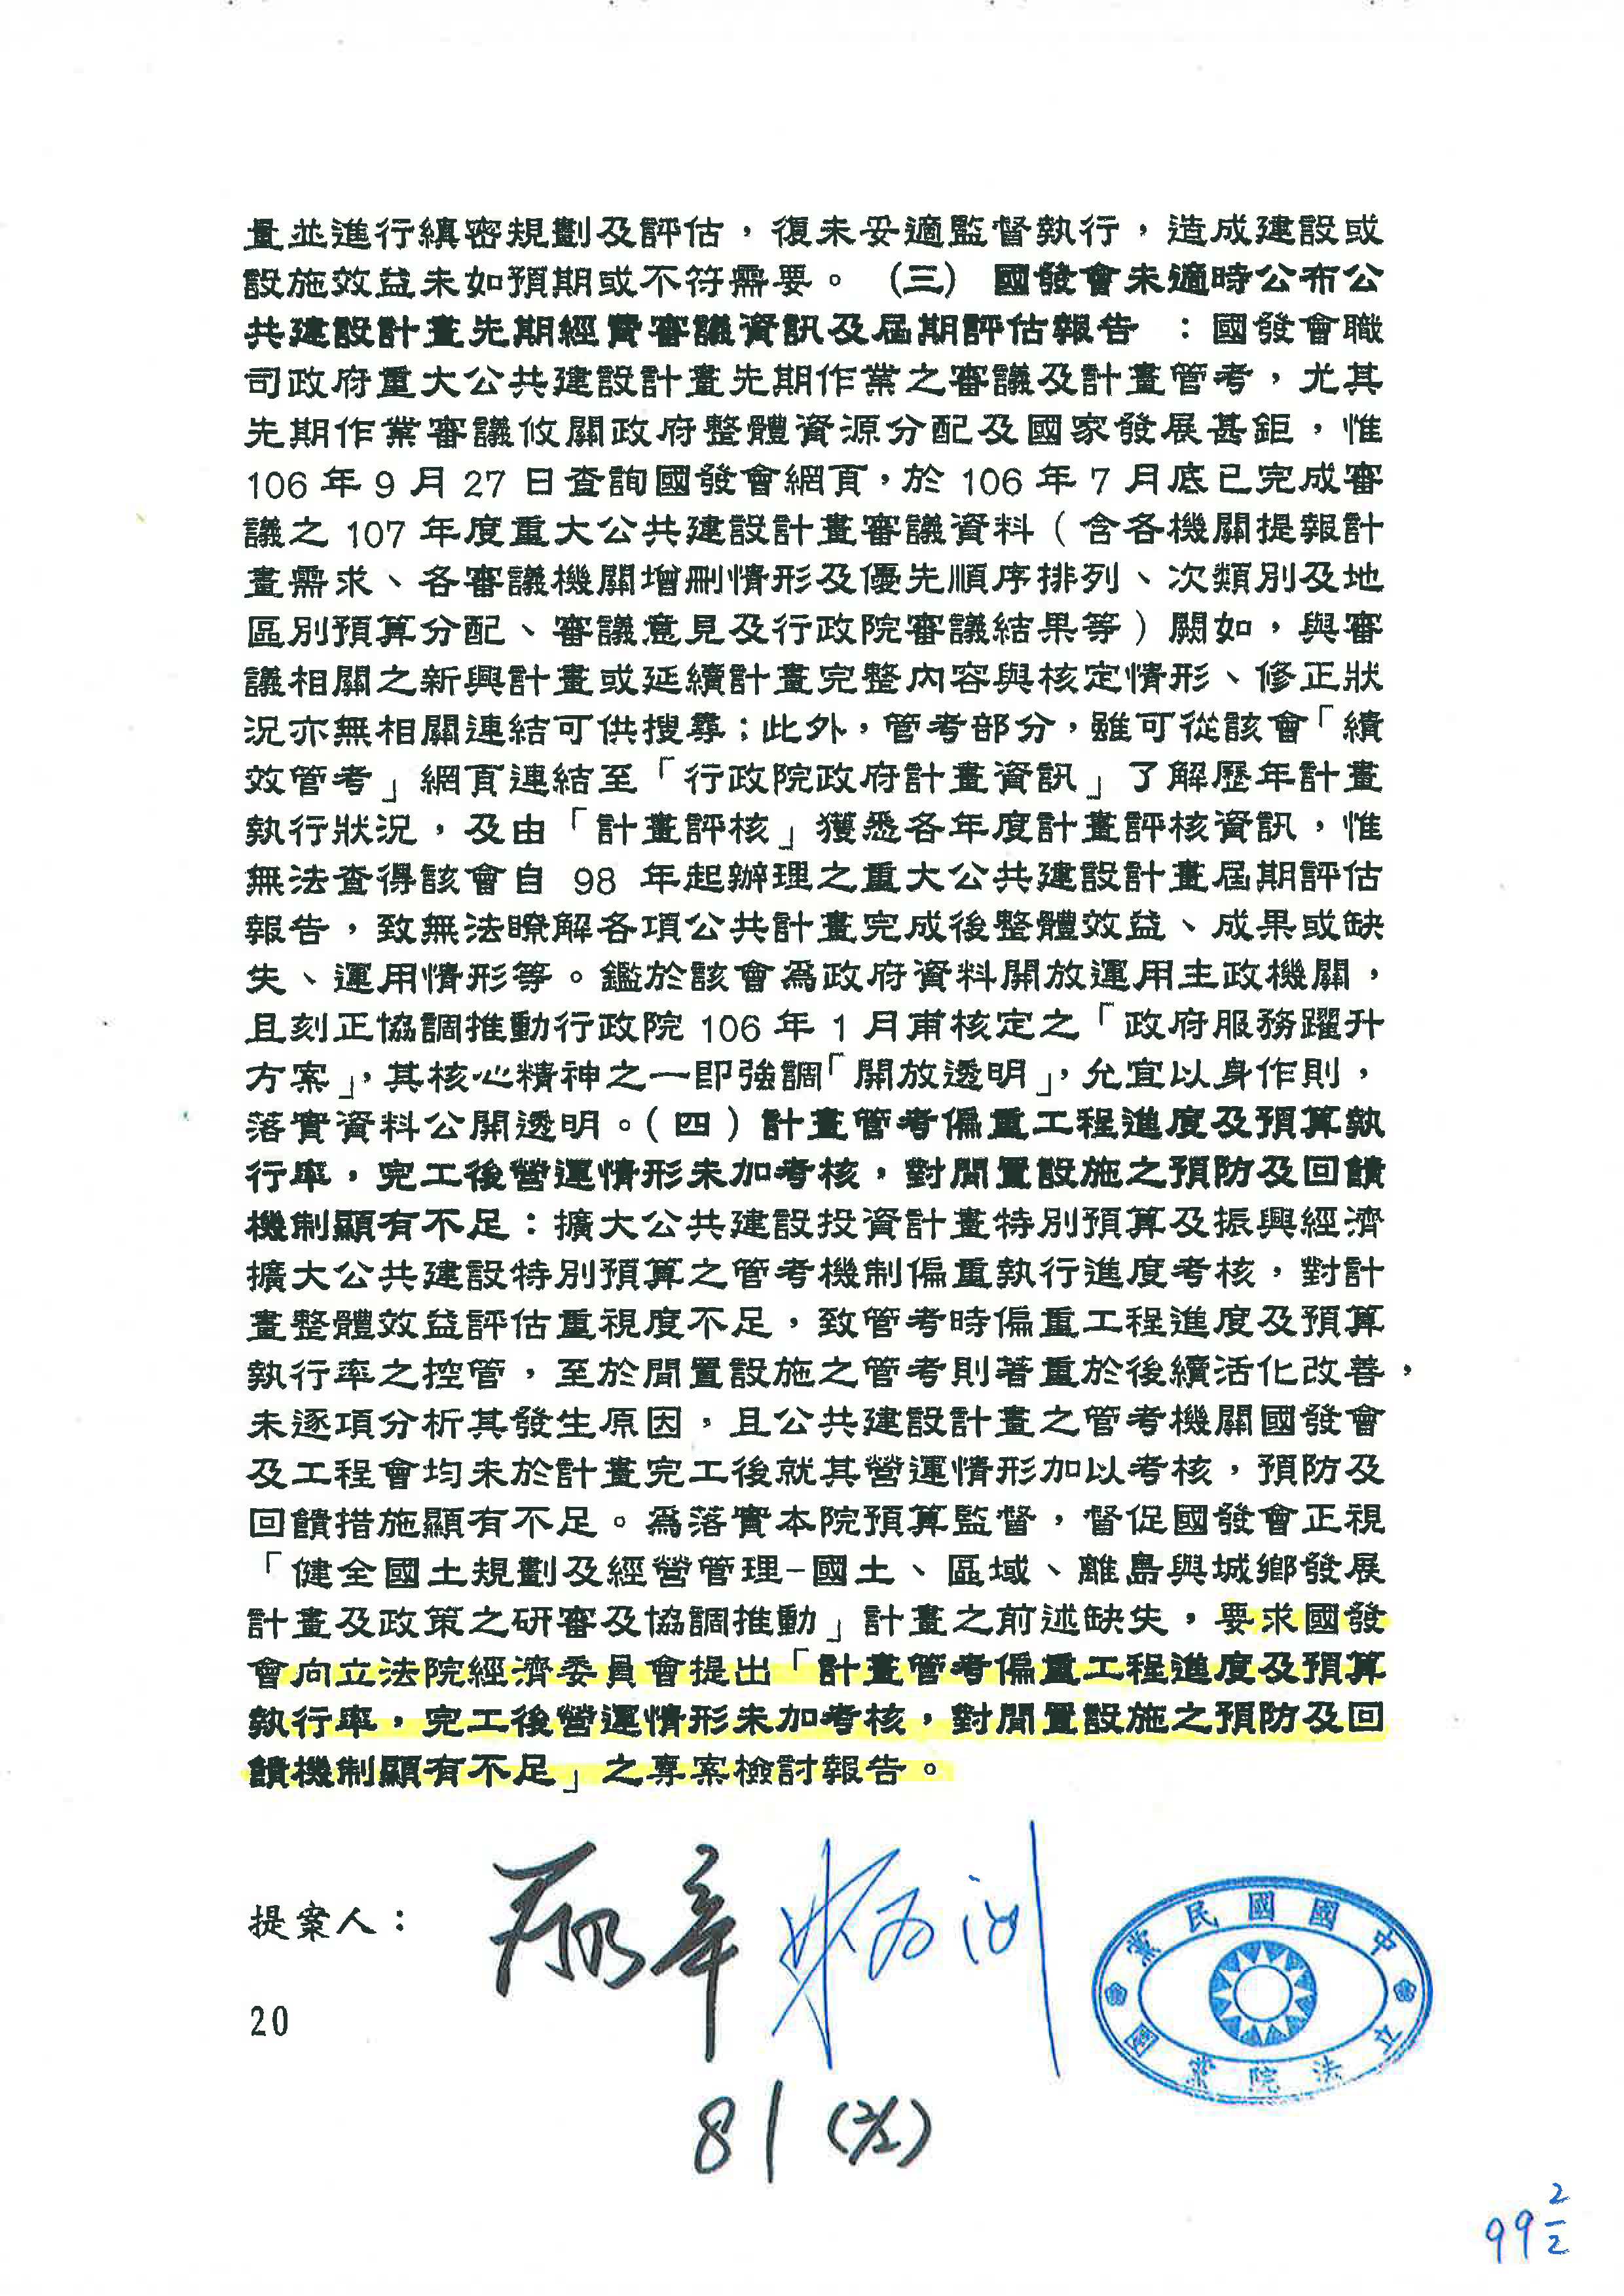 量並進行縝密規劃及評估，復未妥適監督執行，造成建設或
設施效益未如預期或不符需要。（三）國發會未適時公布公
共建設計畫先期經費審議資訊及屆期評估報告：國發會職
司政府重大公共建設計畫先期作業之審議及計畫管考，尤其
先期作業審議攸關政府整體資源分配及國家發展甚鉅，惟
106 年 9 月 27 日查詢國發會網頁，於 106 年 7 月底已完成審
議之 107 年度重大公共建設計畫審議資料（含各機關提報計
畫需求、各審議機關增刪情形及優先順序排列、次類別及地
區別預算分配、審議意見及行政院審議結果等）闕如，與審
議相關之新興計畫或延續計畫完整內容與核定情形、修正狀
況亦無相關連結可供搜尋；此外，管考部分，雖可從該會「績
效管考」網頁連結至「行政院政府計畫資訊」了解歷年計畫
執行狀況，及由「計畫評核」獲悉各年度計畫評核資訊，惟
無法查得該會自 98 年起辦理之重大公共建設計畫屆期評估
報告，致無法瞭解各項公共計畫完成後整體效益、成果或缺
失、運用情形等。鑑於該會為政府資料開放運用主政機關，
且刻正協調推動行政院 106 年 1 月甫核定之「政府服務躍升
方案」，其核心精神之一即強調「開放透明」，允宜以身作則，
落實資料公開透明。（四）計畫管考偏重工程進度及預算執
行率，完工後營運情形未加考核，對閒置設施之預防及回饋
機制顯有不足：擴大公共建設投資計畫特別預算及振興經濟
擴大公共建設特別預算之管考機制偏重執行進度考核，對計
畫整體效益評估重視度不足，致管考時偏重工程進度及預算
執行率之控管，至於閒置設施之管考則著重於後續活化改善，
未逐項分析其發生原因，且公共建設計畫之管考機關國發會
及工程會均未於計畫完工後就其營運情形加以考核，預防及
回饋措施顯有不足。為落實本院預算監督，督促國發會正視
「健全國土規劃及經營管理-國土、區域、離島與城鄉發展
計畫及政策之研審及協調推動」計畫之前述缺失，要求國發
會向立法院經濟委員會提出「計畫管考偏重工程進度及預算
執行率，完工後營運情形未加考核，對閒置設施之預防及回
饋機制顯有不足」之專案檢討報告。
提案人：
中國國民黨
立法院黨團
20
81 (2/2)
99 2/2